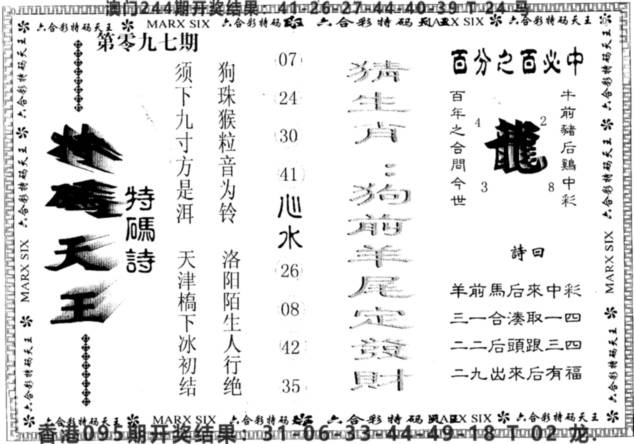 澳门244期开奖结果：41-26-27-44-40-39 T 24 马
六合彩特码天王 MARX SIX 六合彩特码天王 MARX SIX 六合彩特码天王
第零九七期
特碼天王
特碼詩
须下九寸方是洱 天津橋下冰初结
狗珠猴粒音为铃 洛阳陌生人行绝
07
24
30
41
心水
26
08
42
35
猜生肖：狗前羊尾定發財
百分之百必中
牛前豬后鷄中彩
百年之合問今世
龍
4
2
3
8
詩曰
羊前馬后來中彩
一三合湊取一四
二二后頭跟三四
二九出來后有福
六合彩特码天王 MARX SIX 六合彩特码天王 MARX SIX 六合彩特码天王
香港095期开奖结果：31-06-33-44-49-18 T 02 龙